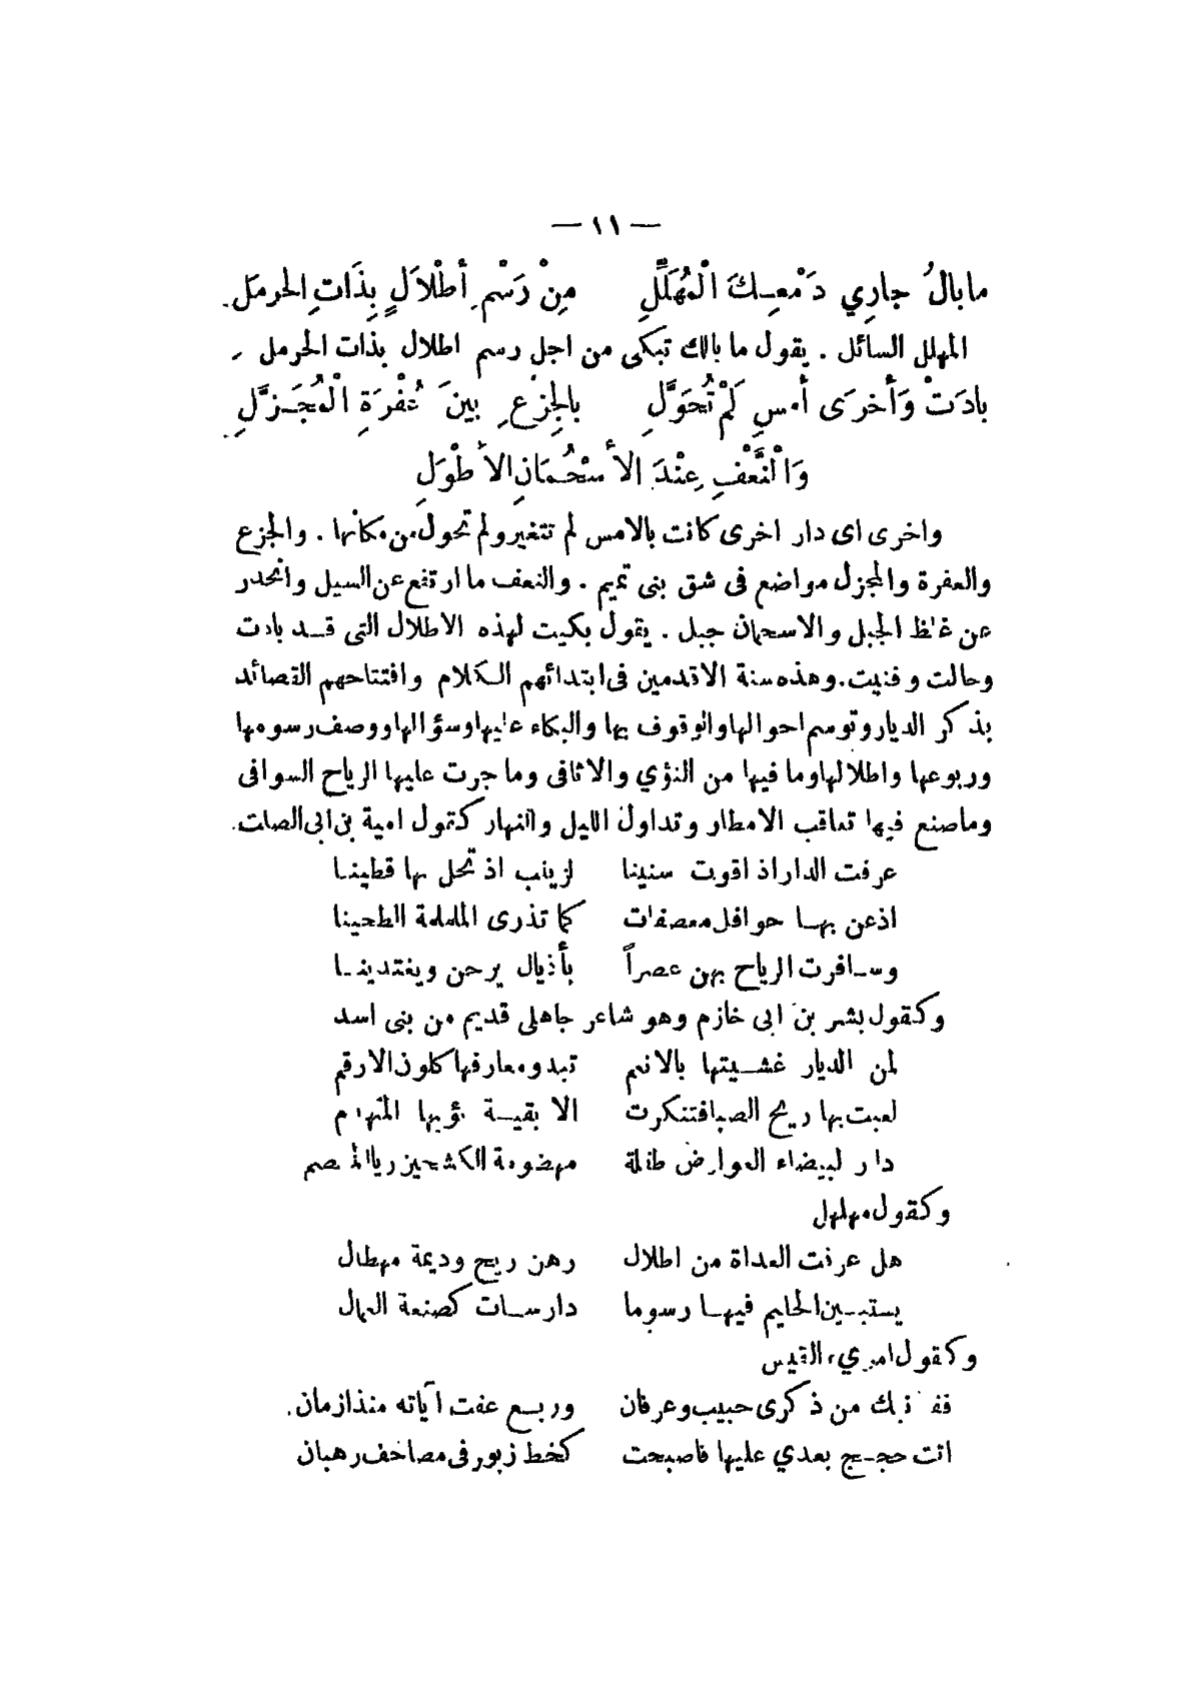 — ١١ —
مابالُ جارِي دَمْعِكَ الْمُهَلِّلِ مِنْ رَسْمِ أطْلاَلٍ بِذَاتِ الحرمَلِ
المهلل السائل . يقول ما بالك تبكى من اجل رسم اطلال بذات الحرمل
بادَتْ وَأخرَى أمسِ لَمْ تُحَوَّلِ بالجِزْعِ بينَ عُفْرَةِ الْمُجَزَّلِ
وَالْنَّعْفِ عِنْدَ الأسْحُمَانِ الأطْوَلِ
واخرى اى دار اخرى كانت بالامس لم تتغير ولم تحول من مكانها . والجزع
والعفرة والمجزل مواضع فى شق بنى تميم . والنعف ما ارتفع عن السيل وانحدر
عن غلظ الجبل والاسحمان جبل . يقول بكيت لهذه الاطلال التى قد بادت
وحالت وفنيت . وهذه سنة الاقدمين فى ابتدائهم الكلام وافتتاحهم القصائد
بذكر الديار وتوسم احوالها والوقوف بها والبكاء عليها وسؤالها ووصف رسومها
وربوعها واطلالها وما فيها من النؤي والاثافى وما جرت عليها الرياح السوافى
وما صنع فيها تعاقب الامطار وتداول الليل والنهار كقول امية بن ابى الصلت.
عرفت الدار اذ اقوت سنينا لزينب اذ تحل بها قطينا
اذعن بها حوافل معصفات كما تذرى الململمة الطحينا
وسافرت الرياح بهن عصراً بأذيال يرحن ويغتدينا
وكقول بشر بن ابى خازم وهو شاعر جاهلى قديم من بنى اسد
لمن الديار غشيتها بالانعم تبدو معارفها كلون الارقم
لعبت بها ريح الصبا فتنكرت الا بقية نؤيها المتهدم
دار لبيضاء العوارض طفلة مهضومة الكشحين ريا المعصم
وكقول مهلهل
هل عرفت الغداة من اطلال رهن ريح وديمة مهطال
يستبين الحليم فيها رسوما دارسات كصنعة العمال
وكقول امريء القيس
قفا نبك من ذكرى حبيب وعرفان وربع عفت آياته منذ ازمان.
اتت حجج بعدي عليها فاصبحت كخط زبور فى مصاحف رهبان